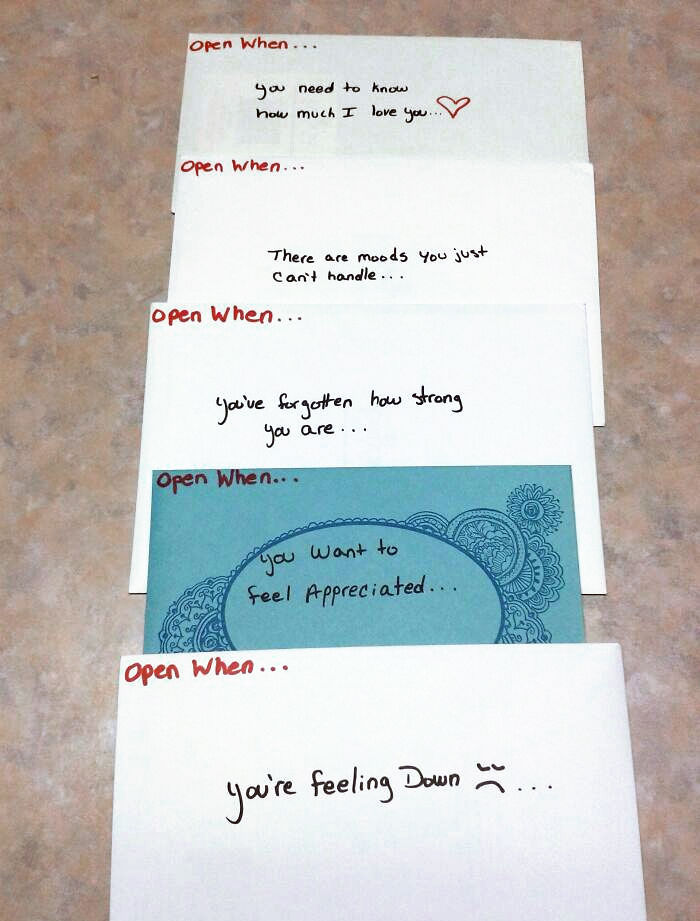 Open When...
you need to know
how much I love you...
Open When...
There are moods you just
can't handle...
Open When...
you've forgotten how strong
you are...
Open When...
you want to
feel Appreciated...
Open When...
you're feeling Down ...